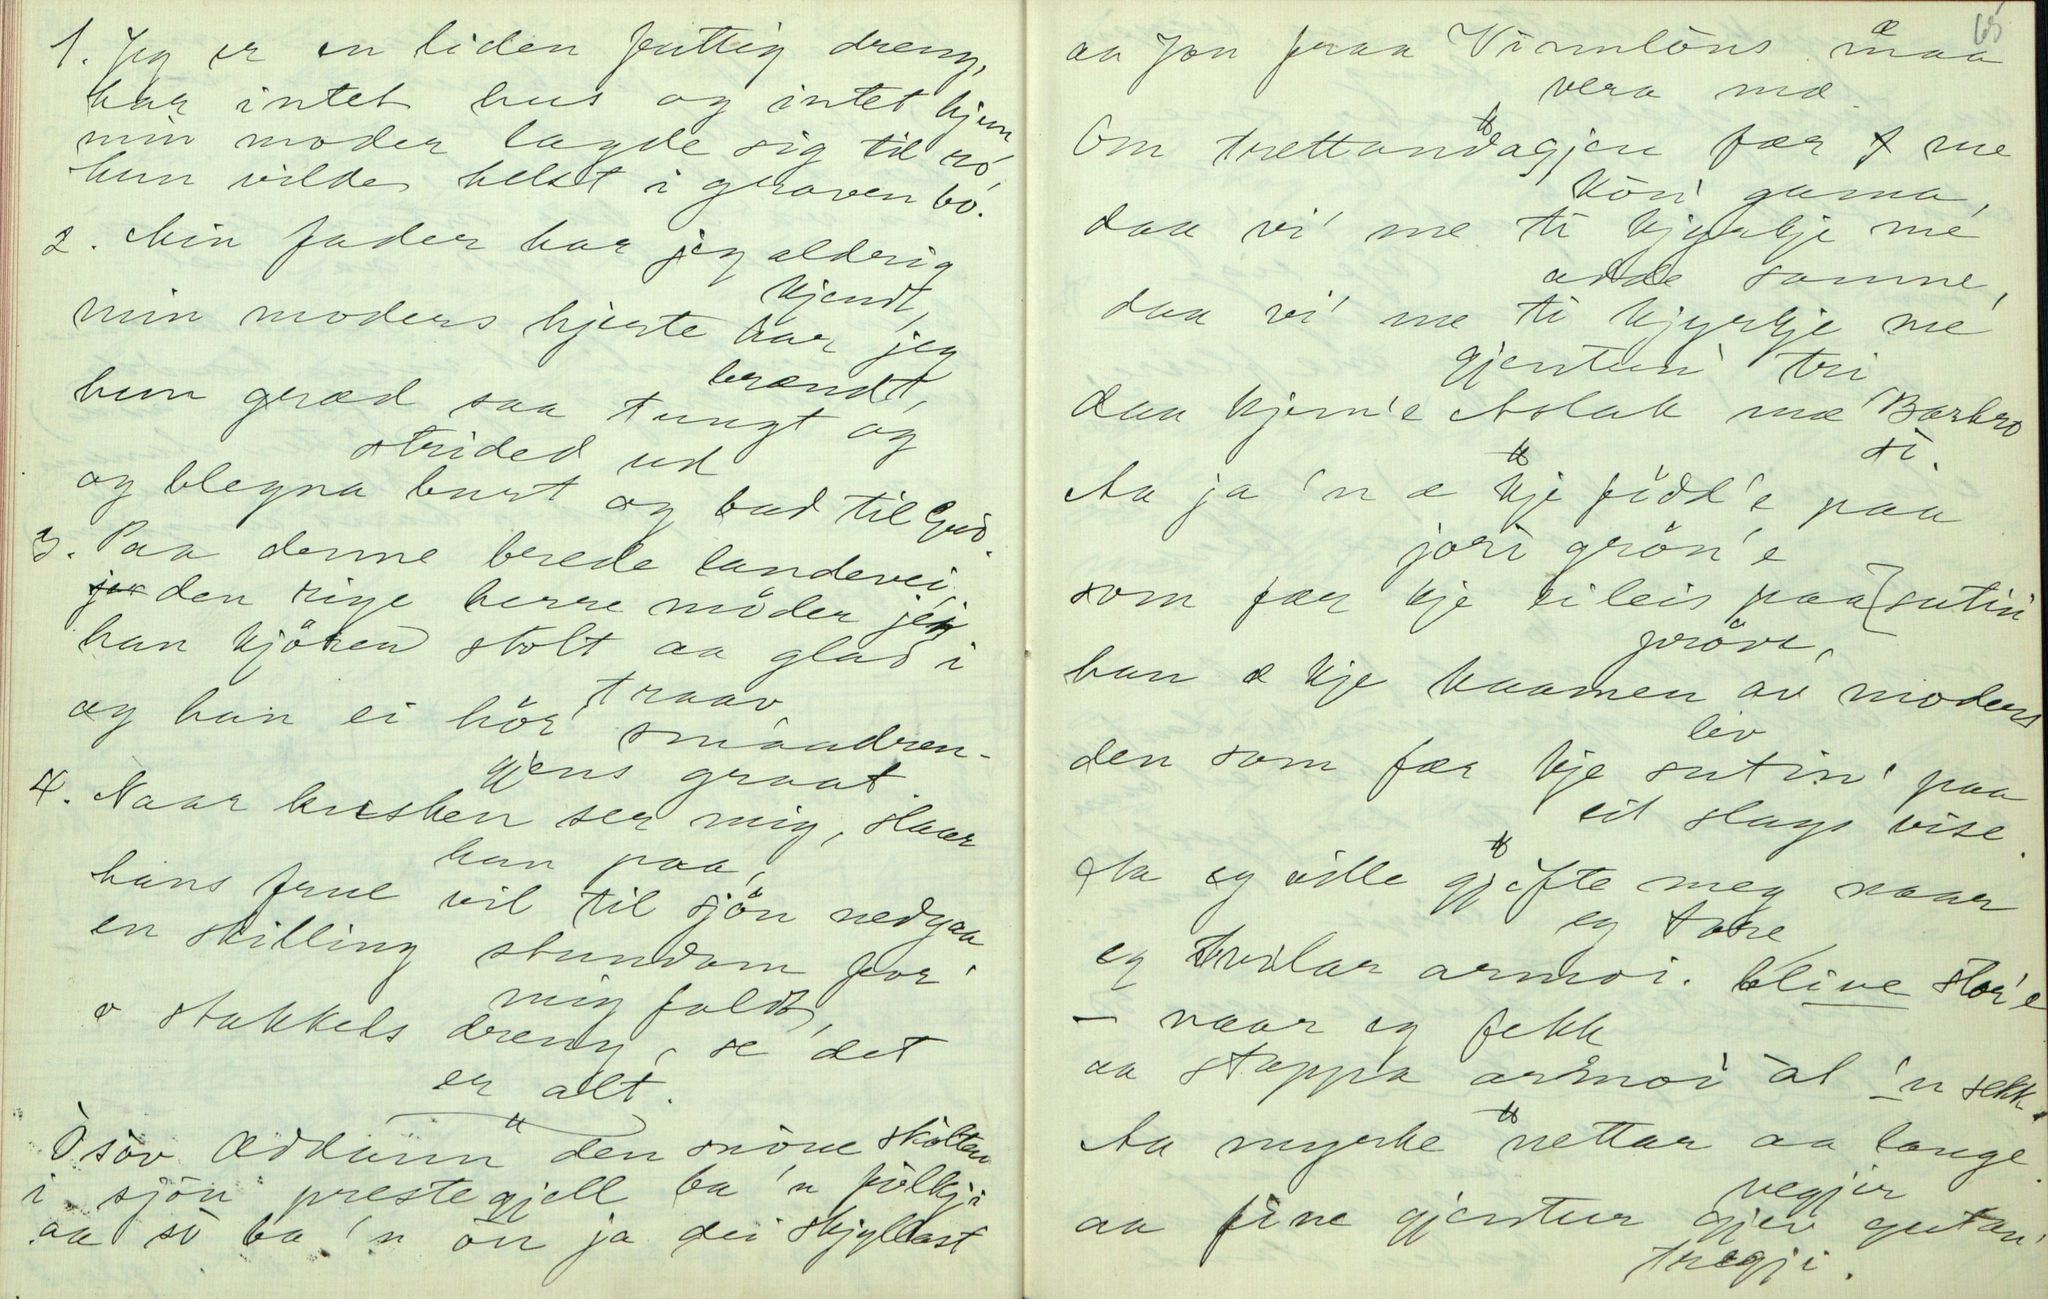 1. Jeg er en liden fattig dreng,
har intet hus og intet hjem
min moder lagde sig til ró,
hun vilde helst i graven bo.
2. Min fader har jeg aldrig
kjendt,
min moders hjerte har jeg
brændt,
hun græd saa tungt og
strided ud
og blegna burt og bad til Gud.
3. Paa denne brede landevei,
den rige herre möder jeg
han kjörer stolt aa glad i
traav
og han ei hör' smaadren-
gjens graat.
4. Naar kusken ser mig, slaar
han paa,
hans frue vil til sjön nedgaa
en skilling stundom for
mig faldt,
o stakkels dreng, se det
er alt.
den snöue skòlten
i sjön prestegjell ba 'n fölkji
aa so ba 'n ön ja dei skjyldast
65
aa Jon fraa Vinnlöns maa
vera mæ.
Om trettandagjen fær me
kön' gama,
daa vi' me ti kjyrkje me
adde samne,
daa vi' me ti kjyrkje me
gjentun' tri
daa kjem'e Aslak mæ Barbro
si.
Aa ja 'n æ kje född'e paa
jori grön'e
som fær kje eileis paa sutin'
pröve,
han æ kje kaamen av moders
liv
den som fær kje sutin' paa
eit slags vise.
Aa eg ville gjifte meg naar
eg tore,
eg tvilar armoi. blive stor'e
– naar eg fekk
aa stappa armoi al 'n sekk.
Aa myrke nettar aa lange
vegjir
aa fine gjentur gjev gutan'
tregji.